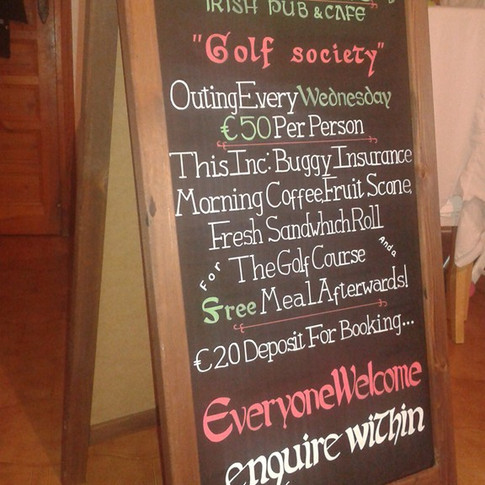 IRISH PUB & CAFE
"Golf society"
Outing Every Wednesday
€50 Per Person
This Inc: Buggy Insurance
Morning Coffee, Fruit Scone,
Fresh Sandwhich Roll
For The Golf Course And a
Free Meal Afterwards!
€20 Deposit For Booking...
Everyone Welcome
enquire within